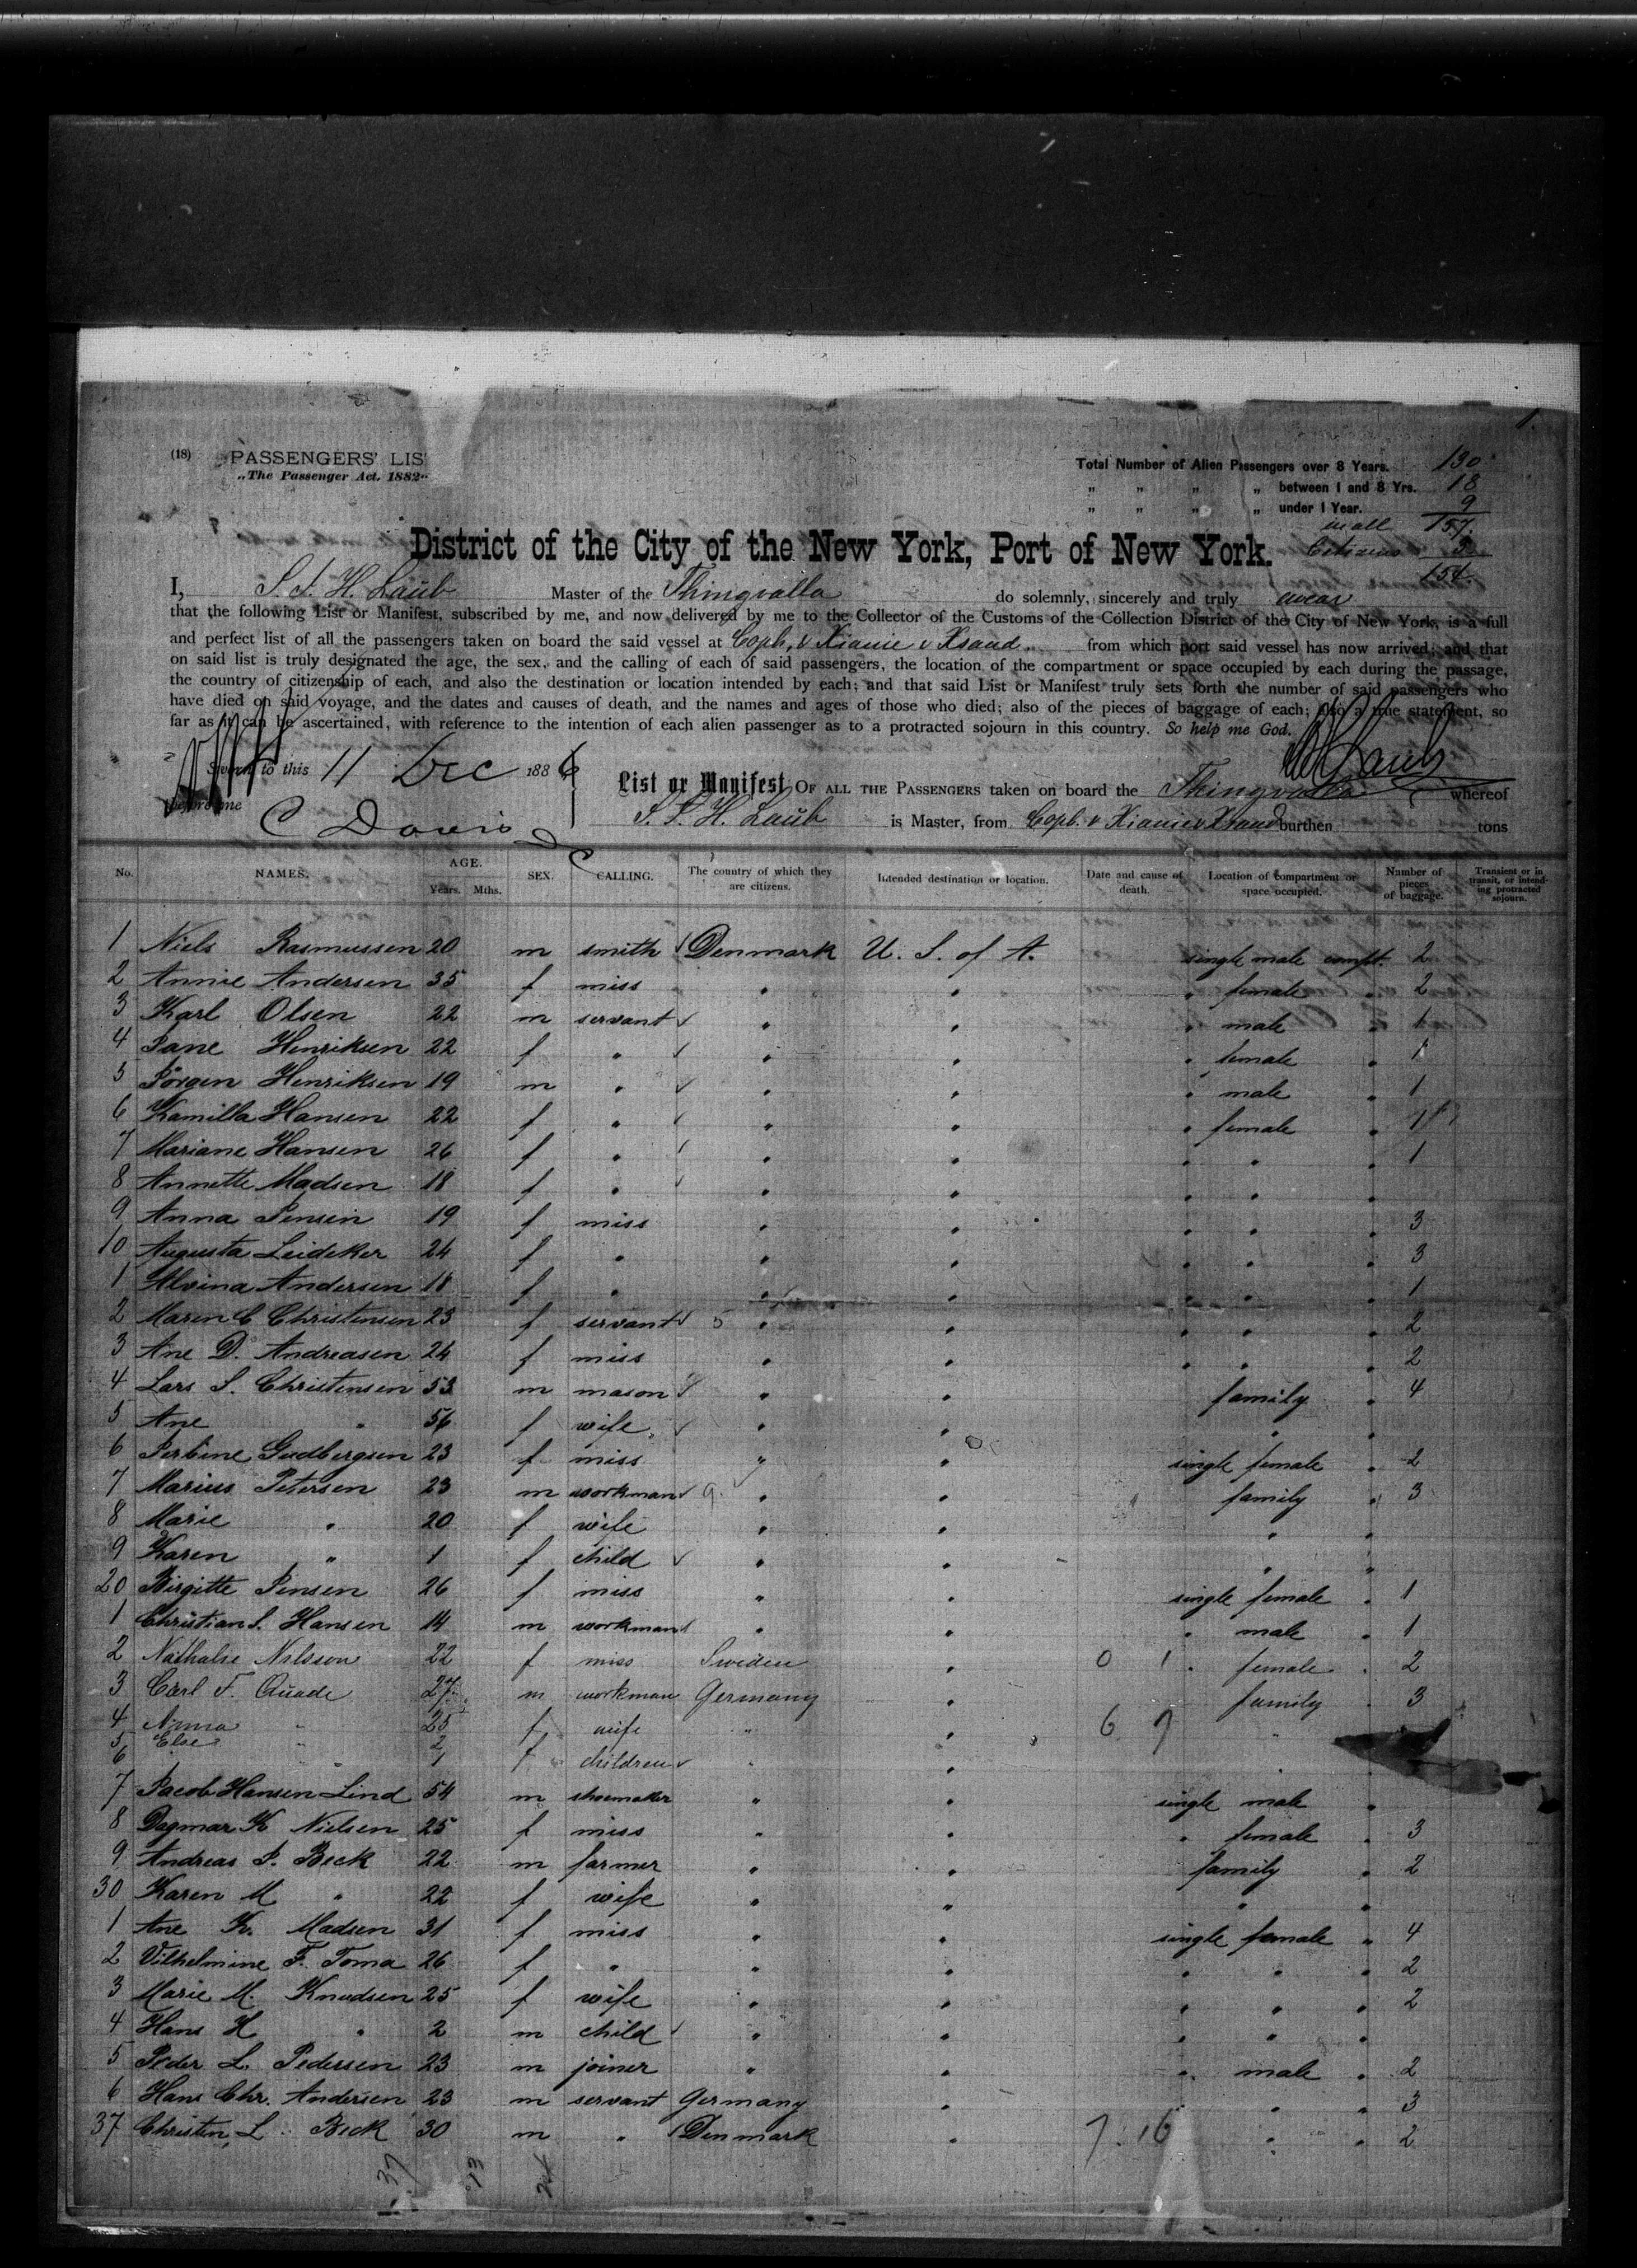 (18) PASSENGERS' LIS
„The Passenger Act. 1882"
Total Number of Alien Passengers over 8 Years. 130
„ „ „ „ between 1 and 8 Yrs. 18
„ „ „ „ under 1 Year. 9
in all 157
Citizens 3
154
District of the City of the New York, Port of New York.
I, S. T. H. Laub Master of the Thingvalla do solemnly, sincerely and truly swear
that the following List or Manifest, subscribed by me, and now delivered by me to the Collector of the Customs of the Collection District of the City of New York, is a full
and perfect list of all the passengers taken on board the said vessel at Coph. v Xianie v Xsand from which port said vessel has now arrived; and that
on said list is truly designated the age, the sex, and the calling of each of said passengers, the location of the compartment or space occupied by each during the passage,
the country of citizenship of each, and also the destination or location intended by each; and that said List or Manifest truly sets forth the number of said passengers who
have died on said voyage, and the dates and causes of death, and the names and ages of those who died; also of the pieces of baggage of each; also a true statement, so
far as it can be ascertained, with reference to the intention of each alien passenger as to a protracted sojourn in this country. So help me God.
Sworn to this 11 Dec 1886
before me C Davis
List or Manifest OF ALL THE PASSENGERS taken on board the Thingvalla whereof
S. T. H. Laub is Master, from Coph. v Xianie v Xsand burthen tons
No. NAMES. AGE. Years. Mths. SEX. CALLING. The country of which they are citizens. Intended destination or location. Date and cause of death. Location of compartment or space occupied. Number of pieces of baggage. Transient or in transit, or intending protracted sojourn.
1 Niels Rasmussen 20 m smith Denmark U. S. of A. single male compt. 2
2 Annie Andersen 35 f miss " " " female " 2
3 Karl Olsen 22 m servant " " " male " 1
4 Jane Henriksen 22 f " " " " female " 1
5 Jörgen Henriksen 19 m " " " " male " 1
6 Kamilla Hansen 22 f " " " " female " 1
7 Mariane Hansen 26 f " " " " " " 1
8 Annette Madsen 18 f " " " " " "
9 Anna Jensen 19 f miss " " " " " 3
10 Augusta Leideker 24 f " " " " " " 3
1 Alvina Andersen 18 f " " " " " " 1
2 Maren C Christensen 23 f servant 5 " " " " " 2
3 Ane D. Andreasen 24 f miss " " " " " 2
4 Lars S. Christensen 53 m mason " " family " 4
5 Ane " 56 f wife " " " "
6 Jerbine Gudbergsen 23 f miss " " single female " 2
7 Marius Petersen 23 m workman 9 " " family " 3
8 Marie " 20 f wife " " " "
9 Karen " 1 f child " " " "
20 Birgitte Jensen 26 f miss " " single female " 1
1 Christian S. Hansen 14 m workman " " " male " 1
2 Nathalie Nilsson 22 f miss Sweden " 0 1 " female " 2
3 Carl F. Quade 27 m workman Germany " family " 3
4 Anna " 25 f wife " " 6 7 "
5 Else " 2
6 " 1 f children " " "
7 Jacob Hansen Lind 54 m shoemaker " " single male "
8 Dagmar K Nielsen 25 f miss " " " female " 3
9 Andreas P. Beck 22 m farmer " " family " 2
30 Karen M " 22 f wife " " " "
1 Ane K. Madsen 31 f miss " " single female " 4
2 Vilhelmine F. Toma 26 f " " " " " " 2
3 Marie M. Knudsen 25 f wife " " " " " 2
4 Hans H " 2 m child " " " " "
5 Peder L. Pedersen 23 m joiner " " " male " 2
6 Hans Chr. Andersen 23 m servant Germany " " " 3
37 Christen L. Beck 30 m " Denmark " 7. 16 " " 2
37 13 24